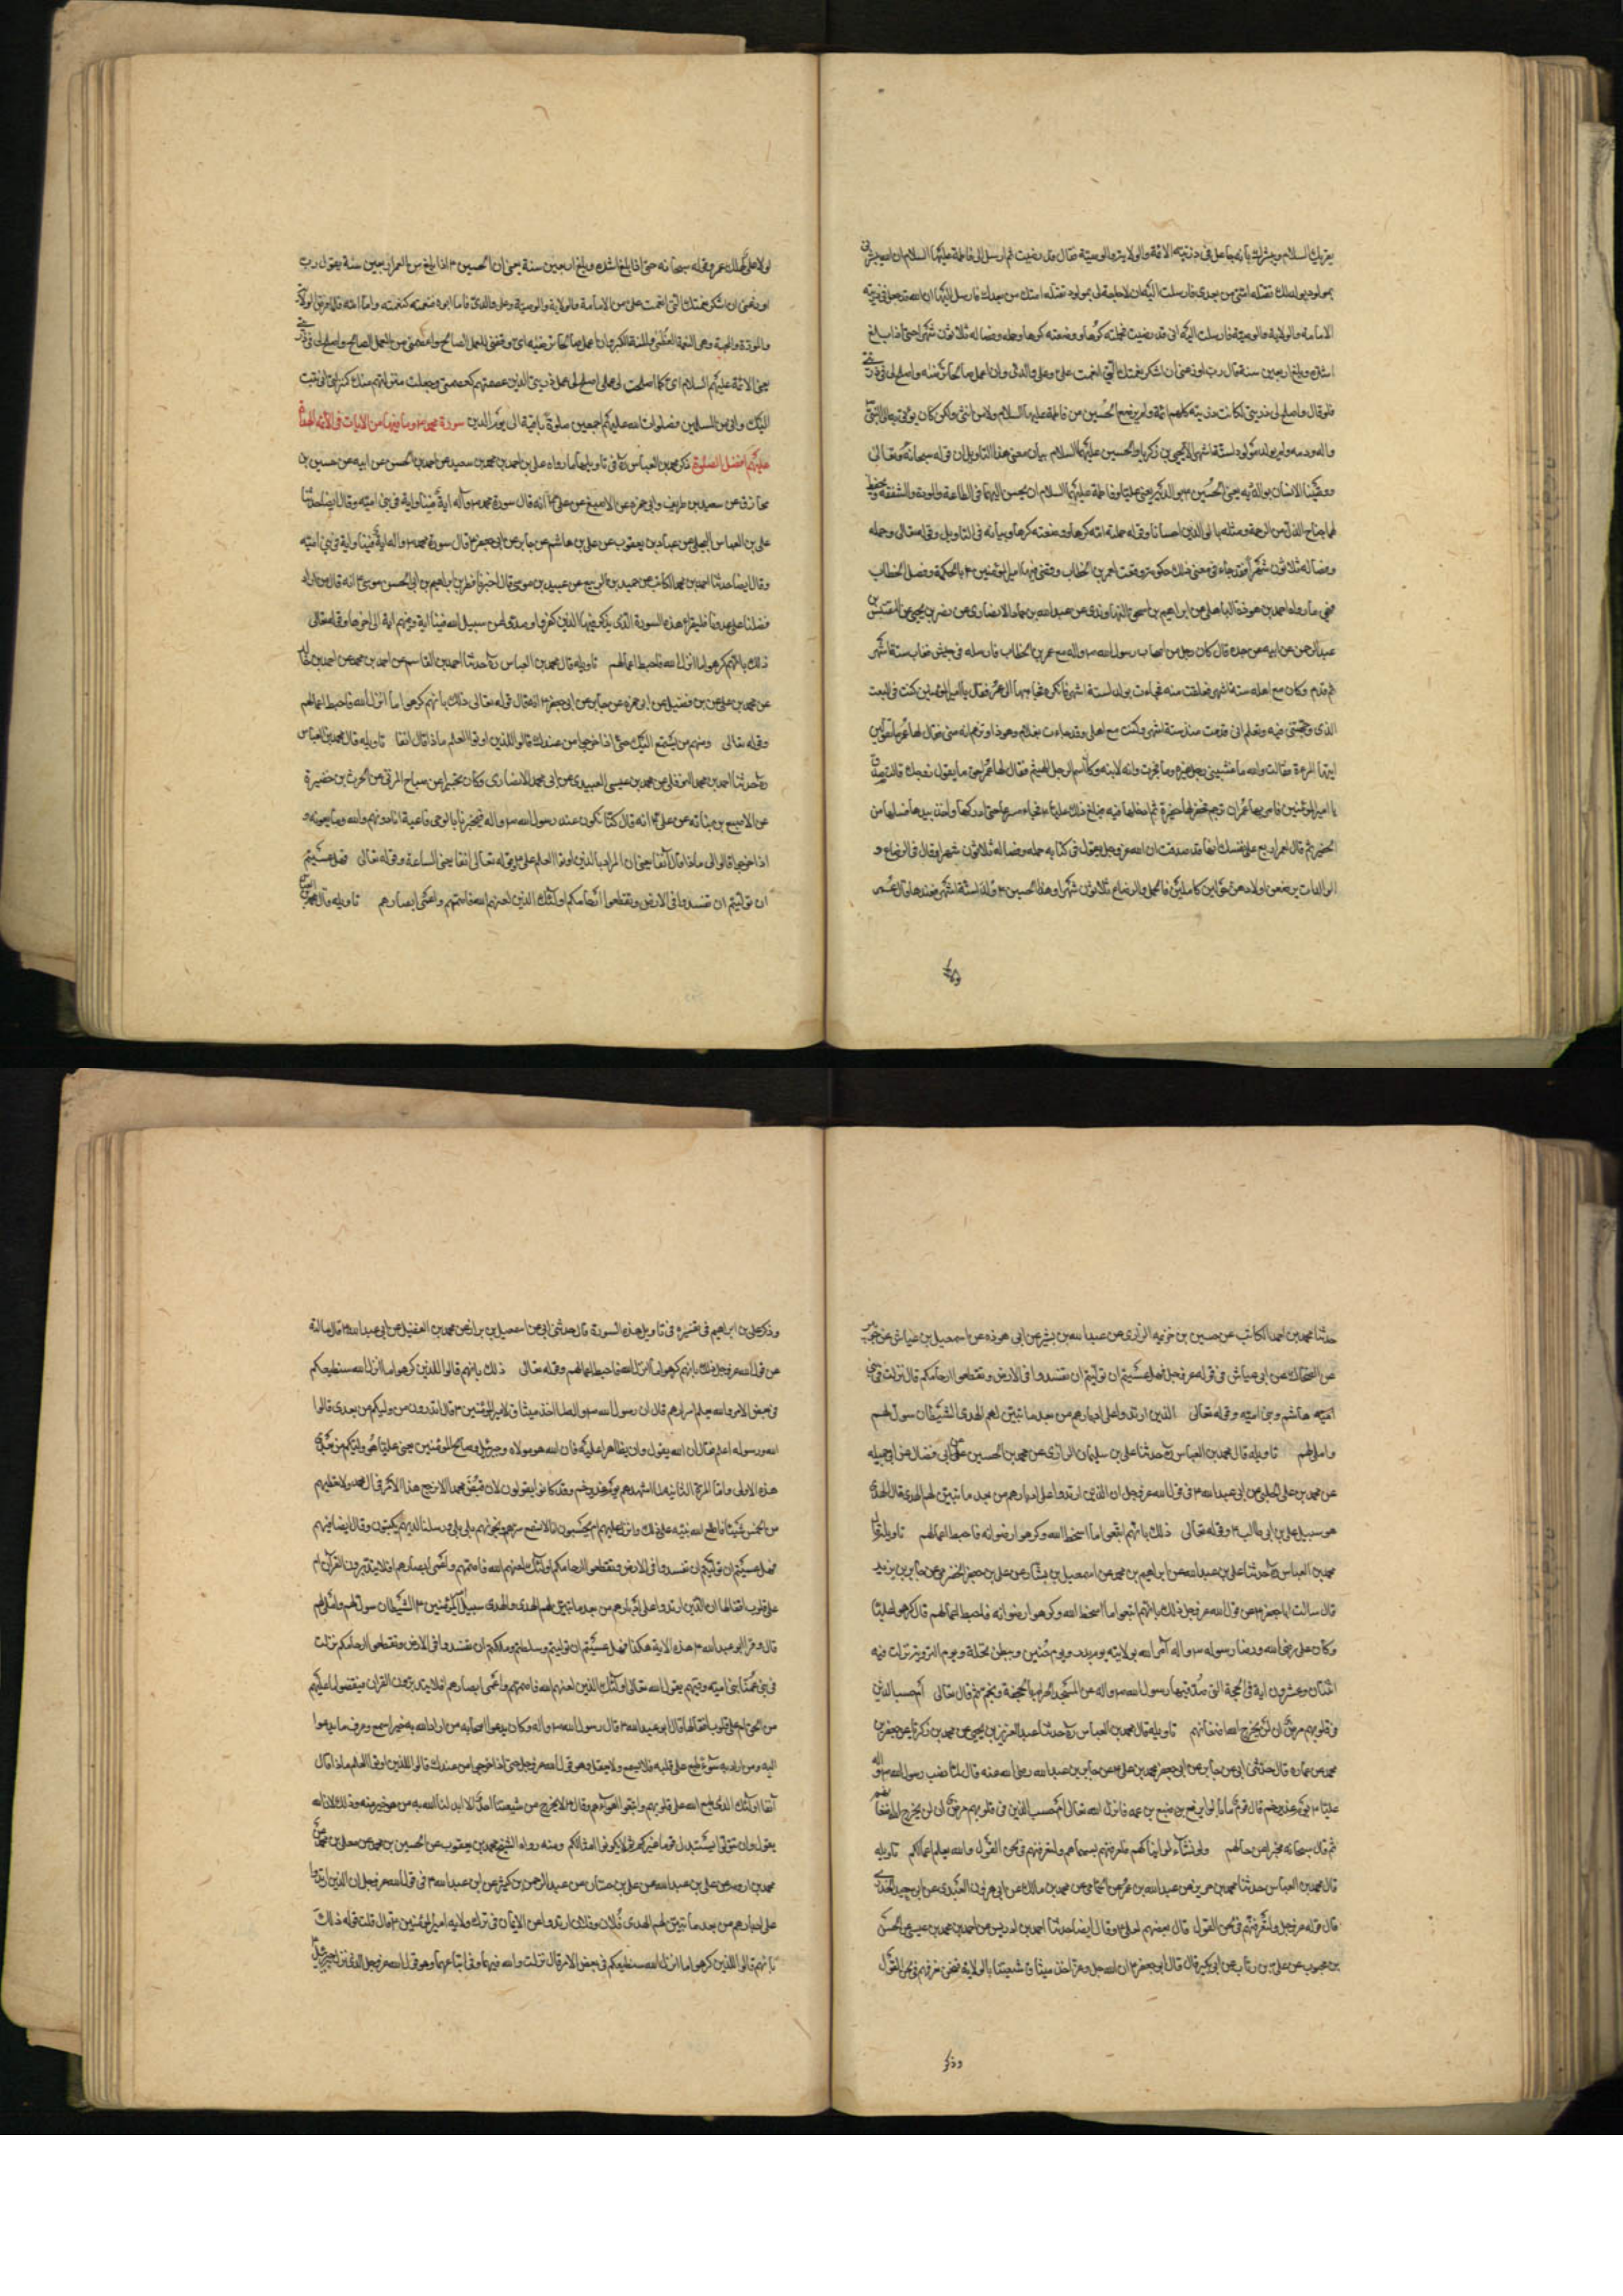 يقرئك السلام ويبشرك بانه جاعل فى ذريته الائمة والولاية والوصية فقال قد رضيت ثم ارسل الى فاطمة عليها السلام ان الله يبشرنى
بمولود يولد لك تقتله امتى من بعدى فارسلت اليه ان لا حاجة لى بمولود تقتله امتك من بعدك فارسل اليها ان الله قد جعل فى ذريته
الامامة والولاية والوصية فارسلت اليه انى قد رضيت فحملته كرها ووضعته كرها وحمله وفصاله ثلاثون شهرا حتى اذا بلغ
اشده وبلغ اربعين سنة قال رب اوزعنى ان اشكر نعمتك التى انعمت على وعلى والدى وان اعمل صالحا ترضيه واصلح لى فى ذريتى
فلو قال واصلح لى ذريتى لكانت ذريته كلهم ائمة ولم يرضع الحسين من فاطمة عليها السلام ولا من انثى ولكن كان يؤتى به النبى
واله ودمه ولم يولد مولود لستة اشهر الا يحيى بن زكريا والحسين عليهما السلام بيان معنى هذا التاويل ان قوله سبحانه وتعالى
ووصينا الانسان بوالديه يعنى الحسين ٣ بوالديه يعنى عليا وفاطمة عليهما السلام ان يحسن اليهما فى الطاعة والمودة والشفقة ويخفض
لهما جناح الذل من الرحمة ومثله بالوالدين احسانا وقوله حملته امه كرها ووضعته كرها وبيانه فى التاويل وقوله تعالى وحمله
وفصاله ثلاثون شهرا فقد جاء فى معنى ذلك حكومة وقعت لعمر بن الخطاب وقضى فيها امير المؤمنين ٣ بالحكمة وفصل الخطاب
فهى ما رواه احمد بن هوذة الباهلى عن ابراهيم بن اسحق النهاوندى عن عبدالله بن حماد الانصارى عن نصر بن يحيى عن المقتبس بن
عبد الرحمن عن ابيه عن جده قال كان رجل من اصحاب رسول الله ص واله مع عمر بن الخطاب فارسله فى جيش فغاب ستة اشهر
ثم قدم وكان مع اهله ستة اشهر فعلقت منه فجاءت بولد لستة اشهر فانكره فجاء بها الى عمر فقال يا امير المؤمنين كنت فى البعث
الذى وجهتنى فيه وتعلم انى قدمت منذ ستة اشهر وكنت مع اهلى وقد جاءت بغلام وهو ذا وتزعم انه منى فقال لها عمر ما تقولين
ايتها المرءة فقالت والله ما غشينى رجل غيره وما فجرت وانه لابنه وكان اسم الرجل الهيثم فقال لها عمر احق ما يقول زوجك قالت صدق
يا امير المؤمنين فامر بها عمر ان ترجم فحفر لها حفيرة ثم ادخلها فيه فبلغ ذلك عليا ٣ فجاء مسرعا حتى ادركها واخذ بيدها فسلها من
الحفيرة ثم قال لعمر اربع على نفسك انها قد صدقت ان الله عز وجل يقول فى كتابه حمله وفصاله ثلاثون شهرا وقال فى الرضاع و
الوالدات يرضعن اولادهن حولين كاملين فالحمل والرضاع ثلاثون شهرا وهذا الحسين ٣ ولد لستة اشهر فعندها قال عمر
لولا على لهلك عمر وقوله سبحانه حتى اذا بلغ اشده وبلغ اربعين سنة يعنى ان الحسين ٣ اذا بلغ من العمر اربعين سنة يقول رب
اوزعنى ان اشكر نعمتك التى انعمت على من الامامة والولاية والوصية وعلى والدى فاما ابوه فنعمته كنعمته واما امه
والمودة والمحبة وهى النعمة العظمى والمنة الكبرى وان اعمل صالحا ترضيه اى وفقنى للعمل الصالح واعصمنى من العمل الصالح واصلح لى فى ذريتى
يعنى الائمة عليهم السلام اى كما اصلحت لى عملى اصلح لى عمل ذريتى الذين عصمتهم كعصمتى وجعلت منزلتهم منك كمنزلتى انى تبت
اليك وانى من المسلمين فصلوات الله عليهم اجمعين صلوة باقية الى يوم الدين سورة محمد ٣ وما فيها من الايات فى الائمة الهداة
عليهم افضل الصلوة ذكر محمد بن العباس ره فى تاويلها ما رواه على بن احمد بن محمد بن سعيد عن احمد بن الحسن عن ابيه عن حسين بن
مخارق عن سعيد بن طريف وابى حمزه عن الاصبغ عن على ٣ انه قال سورة محمد ص واله اية فينا واية فى بنى اميه وقال ايضا حدثنا
على بن العباس البجلى عن عباد بن يعقوب عن على بن هاشم عن جابر عن ابى جعفر ٣ قال سورة محمد ص واله اية فينا واية فى بنى اميه
وقال ايضا حدثنا احمد بن محمد الكاتب عن حميد بن الربيع عن عبيد بن موسى قال اخبرنا فطر بن ابراهيم بن ابى الحسن موسى ٣ انه قال من اراد
فضلنا على عدونا فليقرا هذه السورة الذى يذكر فيها الذين كفروا وصدوا عن سبيل الله فينا اية وفيهم اية الى اخرها وقوله تعالى
ذلك بانهم كرهوا ما انزل الله فاحبط اعمالهم تاويله قال محمد بن العباس ره حدثنا احمد بن القاسم عن احمد بن محمد عن احمد بن خالد
عن محمد بن على عن بن فضيل عن ابى حمزه عن جابر عن ابى جعفر ٣ انه قال قوله تعالى ذلك بانهم كرهوا ما انزل الله فاحبط اعمالهم
وقوله تعالى ومنهم من يستمع اليك حتى اذا خرجوا من عندك قالوا للذين اوتوا العلم ماذا قال انفا تاويله قال محمد بن العباس
ره حدثنا احمد بن محمد النوفلى عن محمد بن عيسى العبيدى عن ابى محمد الانصارى وكان خيرا عن صباح المزنى عن الحرث بن حضيرة
عن الاصبغ بن نباته عن على ٣ انه قال كنا نكون عند رسول الله ص واله فيخبرنا بالوحى فاعيه انا دونهم والله وما يعونه و
اذا خرجوا قالوا لى ماذا قال آنفا يعنى ان المراد بالذين اوتوا العلم على ٣ وقوله تعالى انفا يعنى الساعة وقوله تعالى فهل عسيتم
ان توليتم ان تفسدوا فى الارض وتقطعوا ارحامكم اولئك الذين لعنهم الله فاصمهم واعمى ابصارهم تاويله قال محمد بن العباس
حدثنا محمد بن احمد الكاتب عن حسين بن خزيمه الرازى عن عبد الله بن بشير عن ابى هوذه عن اسمعيل بن عياش عن جويبر
عن الضحاك عن ابى عباس فى قوله عز وجل فهل عسيتم ان توليتم ان تفسدوا فى الارض وتقطعوا ارحامكم قال نزلت فى بنى
اميه هاشم وبنى اميه وقوله تعالى الذين ارتدوا على ادبارهم من بعد ما تبين لهم الهدى الشيطان سول لهم
واملى لهم تاويله قال محمد بن العباس ره حدثنا على بن سليمان الرازى عن محمد بن الحسين عن ابن فضال عن ابى جميله
عن محمد بن على الحلبى عن ابى عبدالله ٣ فى قول الله عز وجل ان الذين ارتدوا على ادبارهم من بعد ما تبين لهم الهدى قال الهدى
هو سبيل على بن ابى طالب ٣ وقوله تعالى ذلك بانهم اتبعوا ما اسخط الله وكرهوا رضوانه فاحبط اعمالهم تاويله قال
محمد بن العباس ره حدثنا على بن عبدالله عن ابراهيم بن محمد عن اسمعيل بن بشار عن على بن جعفر الحضرمى عن جابر بن يزيد
قال سالت ابا جعفر ٣ عن قول الله عز وجل ذلك بانهم اتبعوا ما اسخط الله وكرهوا رضوانه فاحبط اعمالهم قال كرهوا عليا
وكان على رضى الله ورضا رسوله ص واله امر الله بولايته يوم بدر ويوم حنين وببطن نخلة ويوم التروية نزلت فيه
اثنتان وعشرون اية فى الحجة التى صد فيها رسول الله ص واله عن المسجد الحرام بالجحفة وبخم ثم قال تعالى ام حسب الذين
فى قلوبهم مرض ان لن يخرج الله اضغانهم تاويله قال محمد بن العباس ره حدثنا عبد العزيز بن يحيى عن محمد بن زكريا عن جعفر بن
محمد بن عماره قال حدثنى ابى عن جابر عن ابى جعفر محمد بن على ٣ عن جابر بن عبدالله رضى الله عنه قال لما نصب رسول الله ص واله
عليا ٣ يوم غدير خم قال قوم فانزل الله تعالى ام حسب الذين فى قلوبهم مرض ان لن يخرج الله اضغانهم
ثم قال سبحانه مخبرا عن حالهم ولو نشآء لاريناكهم فلعرفتهم بسيماهم ولتعرفنهم فى لحن القول والله يعلم اعمالكم تاويله
قال محمد بن العباس حدثنا محمد بن جرير عن عبدالله بن عمر عن الحمامى عن محمد بن مالك عن ابى هرون العبدى عن ابى سعيد الخدرى
قال قوله عز وجل ولتعرفنهم فى لحن القول قال بغضهم لعلى ٣ وقال ايضا حدثنا احمد بن ادريس عن احمد بن محمد بن عيسى عن الحسن
بن محبوب عن على بن رئاب عن ابن بكير قال قال ابى جعفر ٣ ان الله جل وعز اخذ ميثاق شيعتنا بالولاية فنحن نعرفهم فى لحن القول
وذكر على بن ابراهيم فى تفسيره فى تاويل هذه السورة قال حدثنى ابى عن اسمعيل بن مرار عن محمد بن الفضيل عن ابى عبدالله ٣ قال سالته
عن قول الله عز وجل ذلك بانهم كرهوا ما انزل الله فاحبط اعمالهم وقوله تعالى ذلك بانهم قالوا للذين كرهوا ما انزل الله سنطيعكم
فى بعض الامر والله يعلم اسرارهم قال ان رسول الله ص واله لما اخذ ميثاق لامير المؤمنين ٣ قال اتدرون من وليكم من بعدى قالوا
الله ورسوله اعلم فقال ان الله يقول وان تظاهرا عليه فان الله هو مولاه وجبرئيل وصالح المؤمنين يعنى عليا هو وليكم من بعدى
هذه الاولى واما المرة الثانيه لما اشهدهم يوم غدير خم وقد كانوا يقولون لئن قبض محمد لا نرجع هذا الامر فى ال محمد ولا نعطيهم
من الخمس شيئا فاطلع الله نبيه على ذلك وانزل عليهم ام يحسبون انا لا نسمع سرهم ونجواهم بلى ورسلنا لديهم يكتبون وقال ايضا فيهم
فهل عسيتم ان توليتم ان تفسدوا فى الارض وتقطعوا ارحامكم اولئك الذين لعنهم الله فاصمهم واعمى ابصارهم افلا يتدبرون القرآن ام
على قلوب اقفالها ان الذين ارتدوا على ادبارهم من بعد ما تبين لهم الهدى والهدى سبيل امير المؤمنين ٣ الشيطان سول لهم واملى لهم
قال وقرا ابو عبدالله ٣ هذه الاية هكذا فهل عسيتم ان توليتم وسلطتم وملكتم ان تفسدوا فى الارض وتقطعوا ارحامكم نزلت
فى بنى عمنا بنى اميه وفيهم يقول الله تعالى اولئك الذين لعنهم الله فاصمهم واعمى ابصارهم افلا يتدبرون القران
قال ابو عبدالله ٣ قال رسول الله ص واله وكان يدعو اصحابه من اراد الله به خيرا سمع وعرف ما يدعوا
اليه ومن اراد به سوء طبع على قلبه فلا يسمع ولا يعقل وهو قول الله عز وجل حتى اذا خرجوا من عندك قالوا للذين اوتوا العلم ماذا قال
آنفا اولئك الذين طبع الله على قلوبهم واتبعوا اهواءهم وقال ٣ لا يخرج من شيعتنا احد الا ابدلنا الله به من هو خير منه وذلك لان الله
يقول وان تتولوا يستبدل قوما غيركم ثم لا يكونوا امثالكم ومنه رواه الشيخ محمد بن يعقوب عن الحسين بن محمد عن معلى بن محمد عن
محمد بن اورمه عن على بن عبدالله عن على بن حسان عن عبد الرحمن بن كثير عن ابى عبدالله ٣ فى قول الله عز وجل ان الذين ارتدوا
على ادبارهم من بعد ما تبين لهم الهدى فلان وفلان ارتدوا عن الايمان فى ترك ولايه امير المؤمنين ٣ قال قلت قوله ذلك
بانهم قالوا للذين كرهوا ما انزل الله سنطيعكم فى بعض الامر قال نزلت والله فيهما وفى اتباعهما وهو قول الله عز وجل الذى نزل به جبرئيل